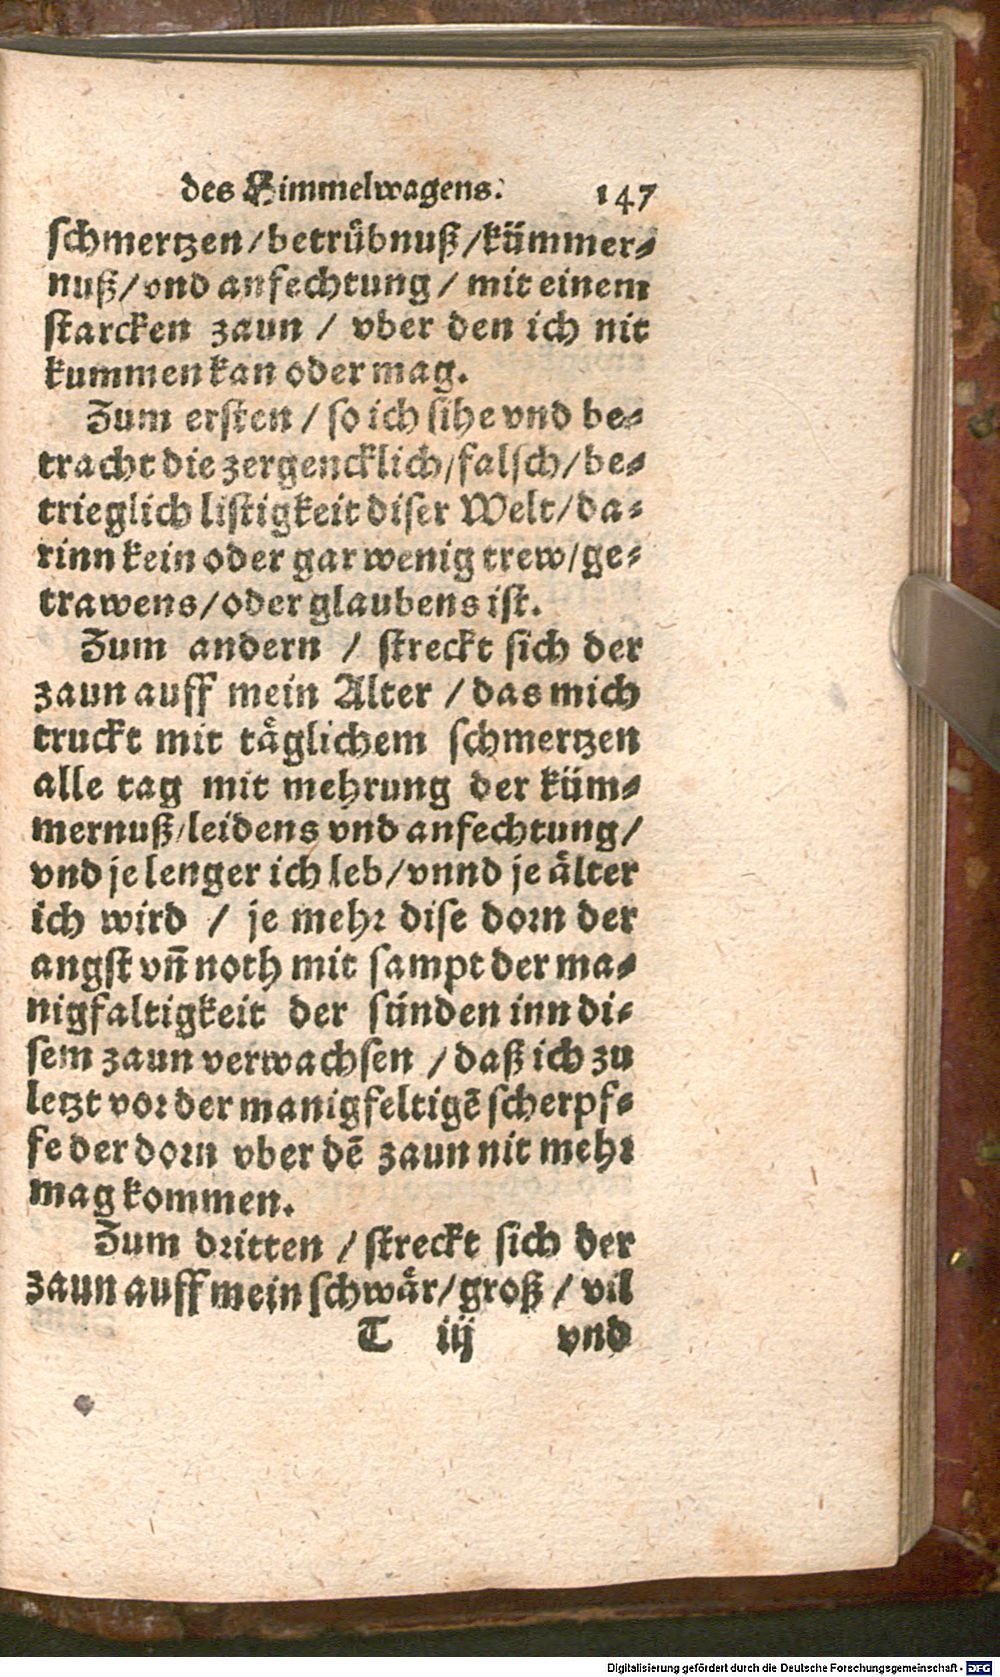 des Himmelwagens. 147
schmertzen/betruͤbnuß/kümmer-
nuß/vnd anfechtung/ mit einem
starcken zaun / vber den ich nit
kummen kan oder mag.
Zum ersten / so ich sihe vnd be-
tracht die zergencklich/falsch/be-
trieglich listigkeit diser Welt/da-
rinn kein oder gar wenig trew/ge-
trawens/oder glaubens ist.
Zum andern / streckt sich der
zaun auff mein Alter / das mich
truckt mit taͤglichem schmertzen
alle tag mit mehrung der küm-
mernuß/leidens vnd anfechtung/
vnd je lenger ich leb/vnnd je aͤlter
ich wird / je mehr dise dorn der
angst vñ noth mit sampt der ma-
nigfaltigkeit der sünden inn di-
sem zaun verwachsen / daß ich zu
letzt vor der manigfeltigē scherpf-
fe der dorn vber dē zaun nit mehr
mag kommen.
Zum dritten / streckt sich der
zaun auff mein schwaͤr/groß / vil
T iij vnd
Digitalisierung gefördert durch die Deutsche Forschungsgemeinschaft - DFG